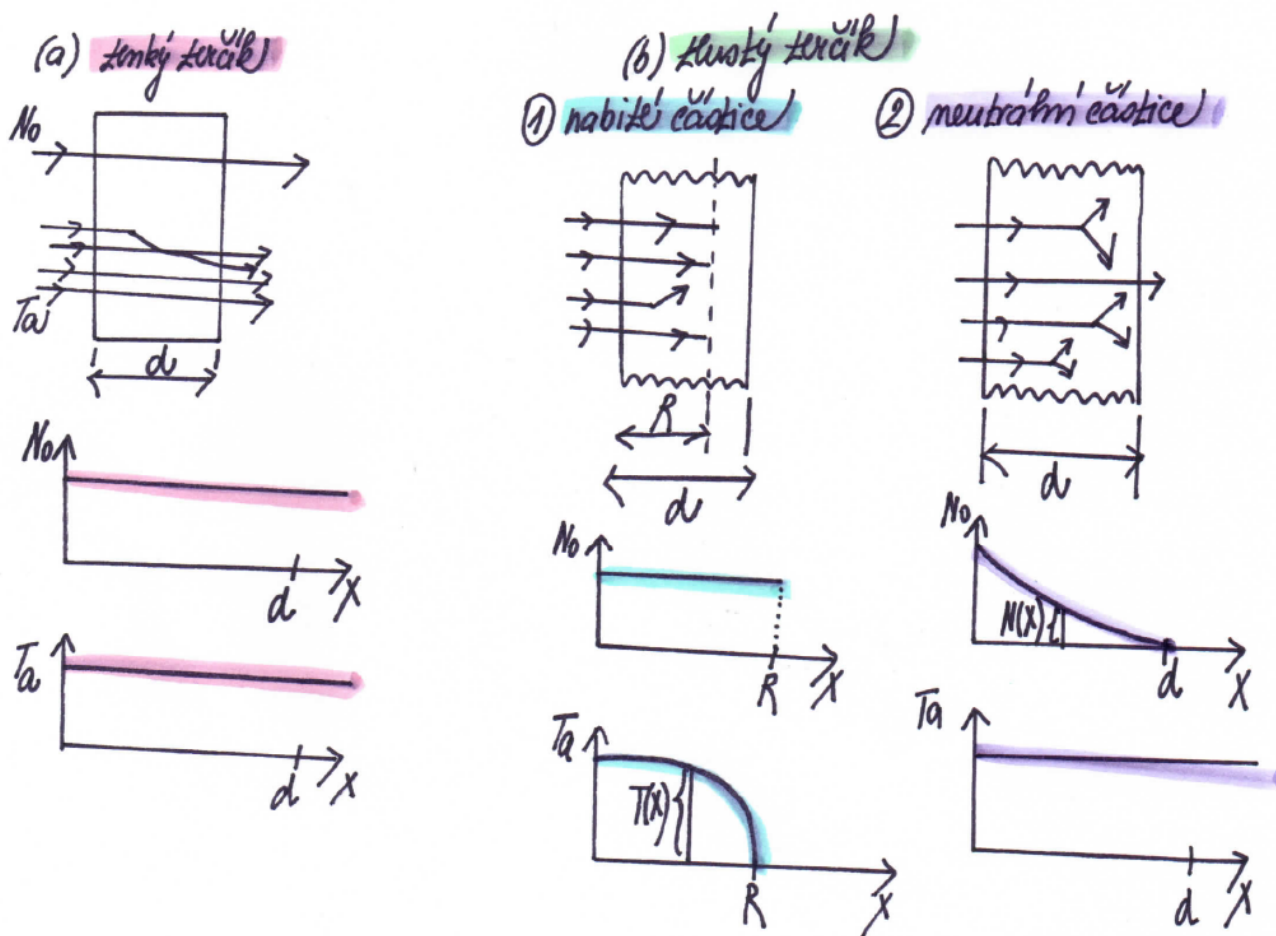 (a) tenký terčík
N₀
Ta
d
N₀
d
X
Ta
d
X
(b) tlustý terčík
① nabité částice
R
d
N₀
R
X
Ta
T(X)
R
X
② neutrální částice
d
N₀
N(X)
d
X
Ta
d
X